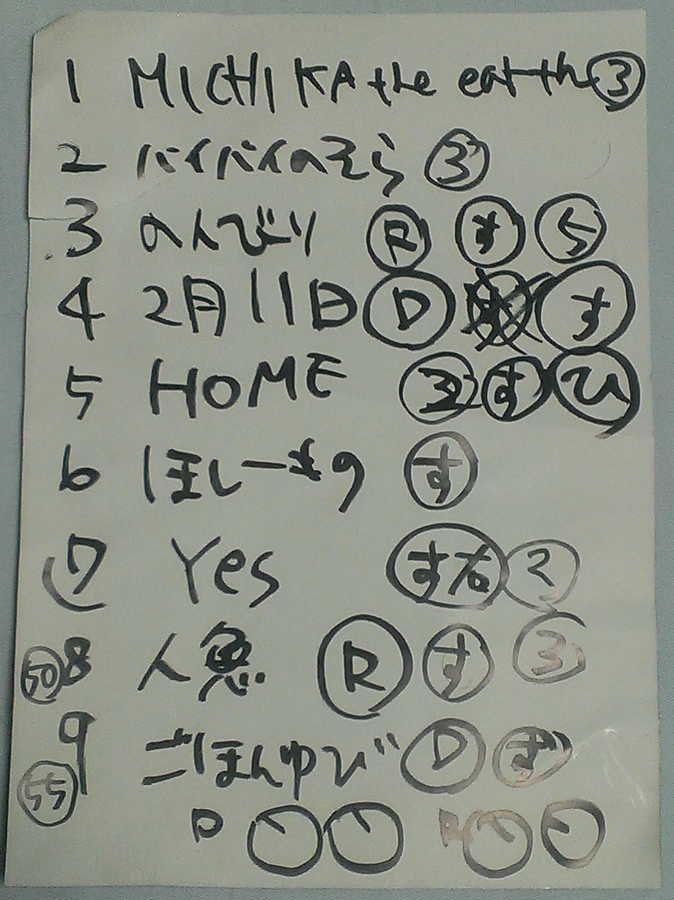 1 MICHIKA the earth 3
2 バイバイのそら 3
3 のんびり R す 5
4 2月11日 D す
5 HOME す ひ
6 ほしーもの す
7 Yes す右 2
50 8 人魚 R す 3
55 9 ごほんゆび D ず
D